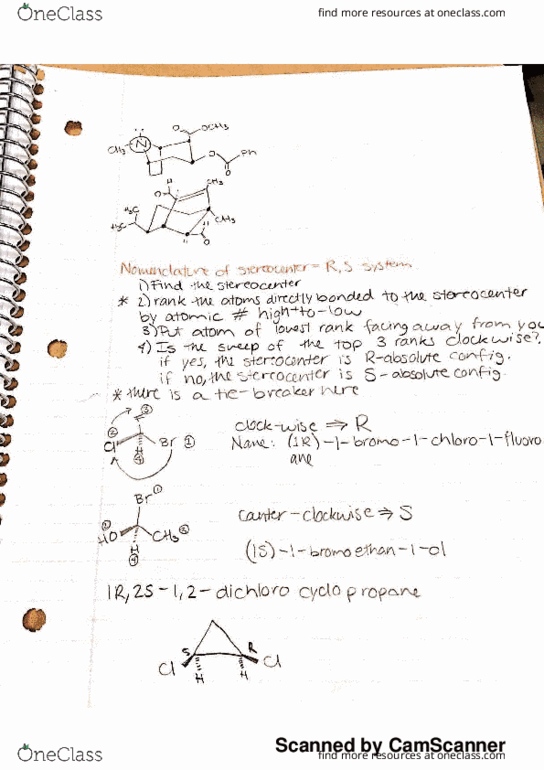 OneClass
find more resources at oneclass.com
O OCH3
CH3 N
O Ph
O
H CH3
O
H3C
H3C CH3
H O
Nomenclature of stereocenter = R,S system
1) Find the stereocenter
* 2) rank the atoms directly bonded to the stereocenter
by atomic # high to low
3) Put atom of lowest rank facing away from you
4) Is the sweep of the top 3 ranks clockwise?
if yes, the stereocenter is R-absolute config.
if no, the stereocenter is S-absolute config.
* there is a tie-breaker here
F 3
2 Cl Br 1
H
4
clock-wise ⇒ R
Name: (1R)-1-bromo-1-chloro-1-fluoro
ane
Br 1
HO CH3
H
4
counter-clockwise ⇒ S
(1S)-1-bromoethan-1-ol
1R,2S-1,2-dichloro cyclopropane
S R
Cl Cl
H H
Scanned by CamScanner
OneClass
find more resources at oneclass.com